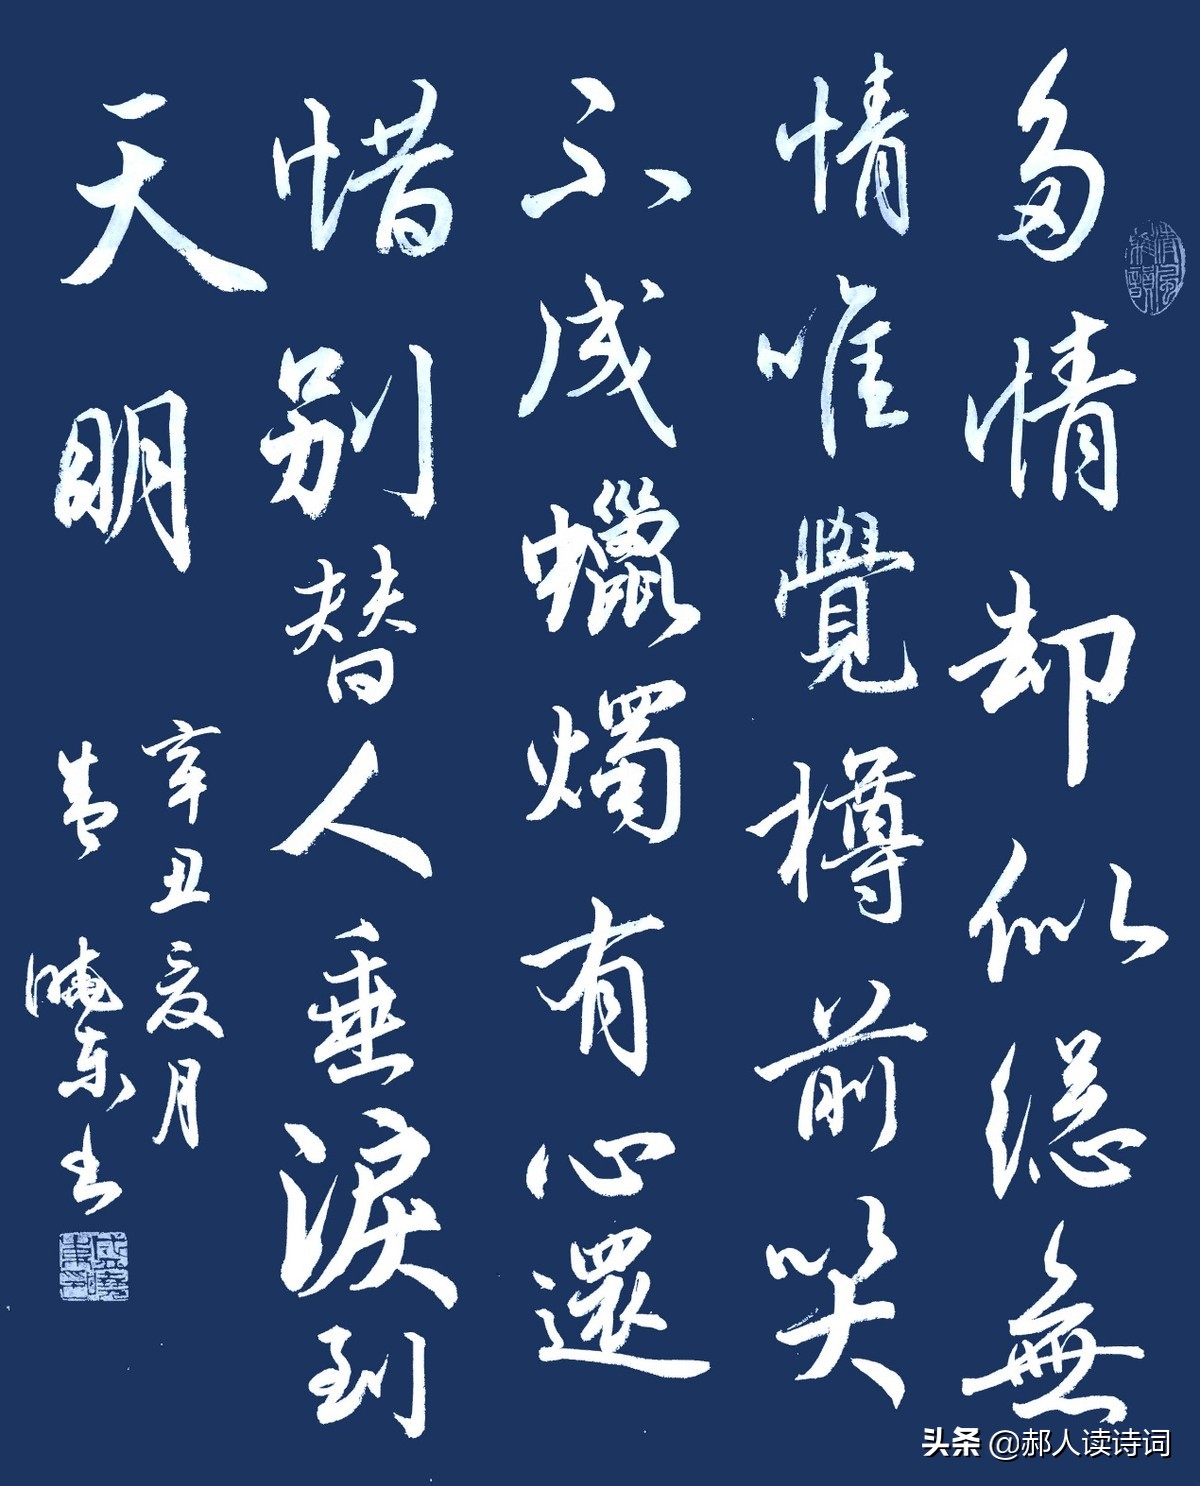 多情却似總無
情唯覺樽前笑
不成蠟燭有心還
惜别替人垂淚到
天明
辛丑夏月
曉东书
头条 @郝人读诗词